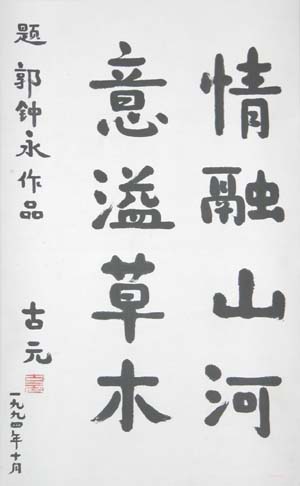 情融山河
意溢草木
题郭钟永作品
古元
一九九四年十月